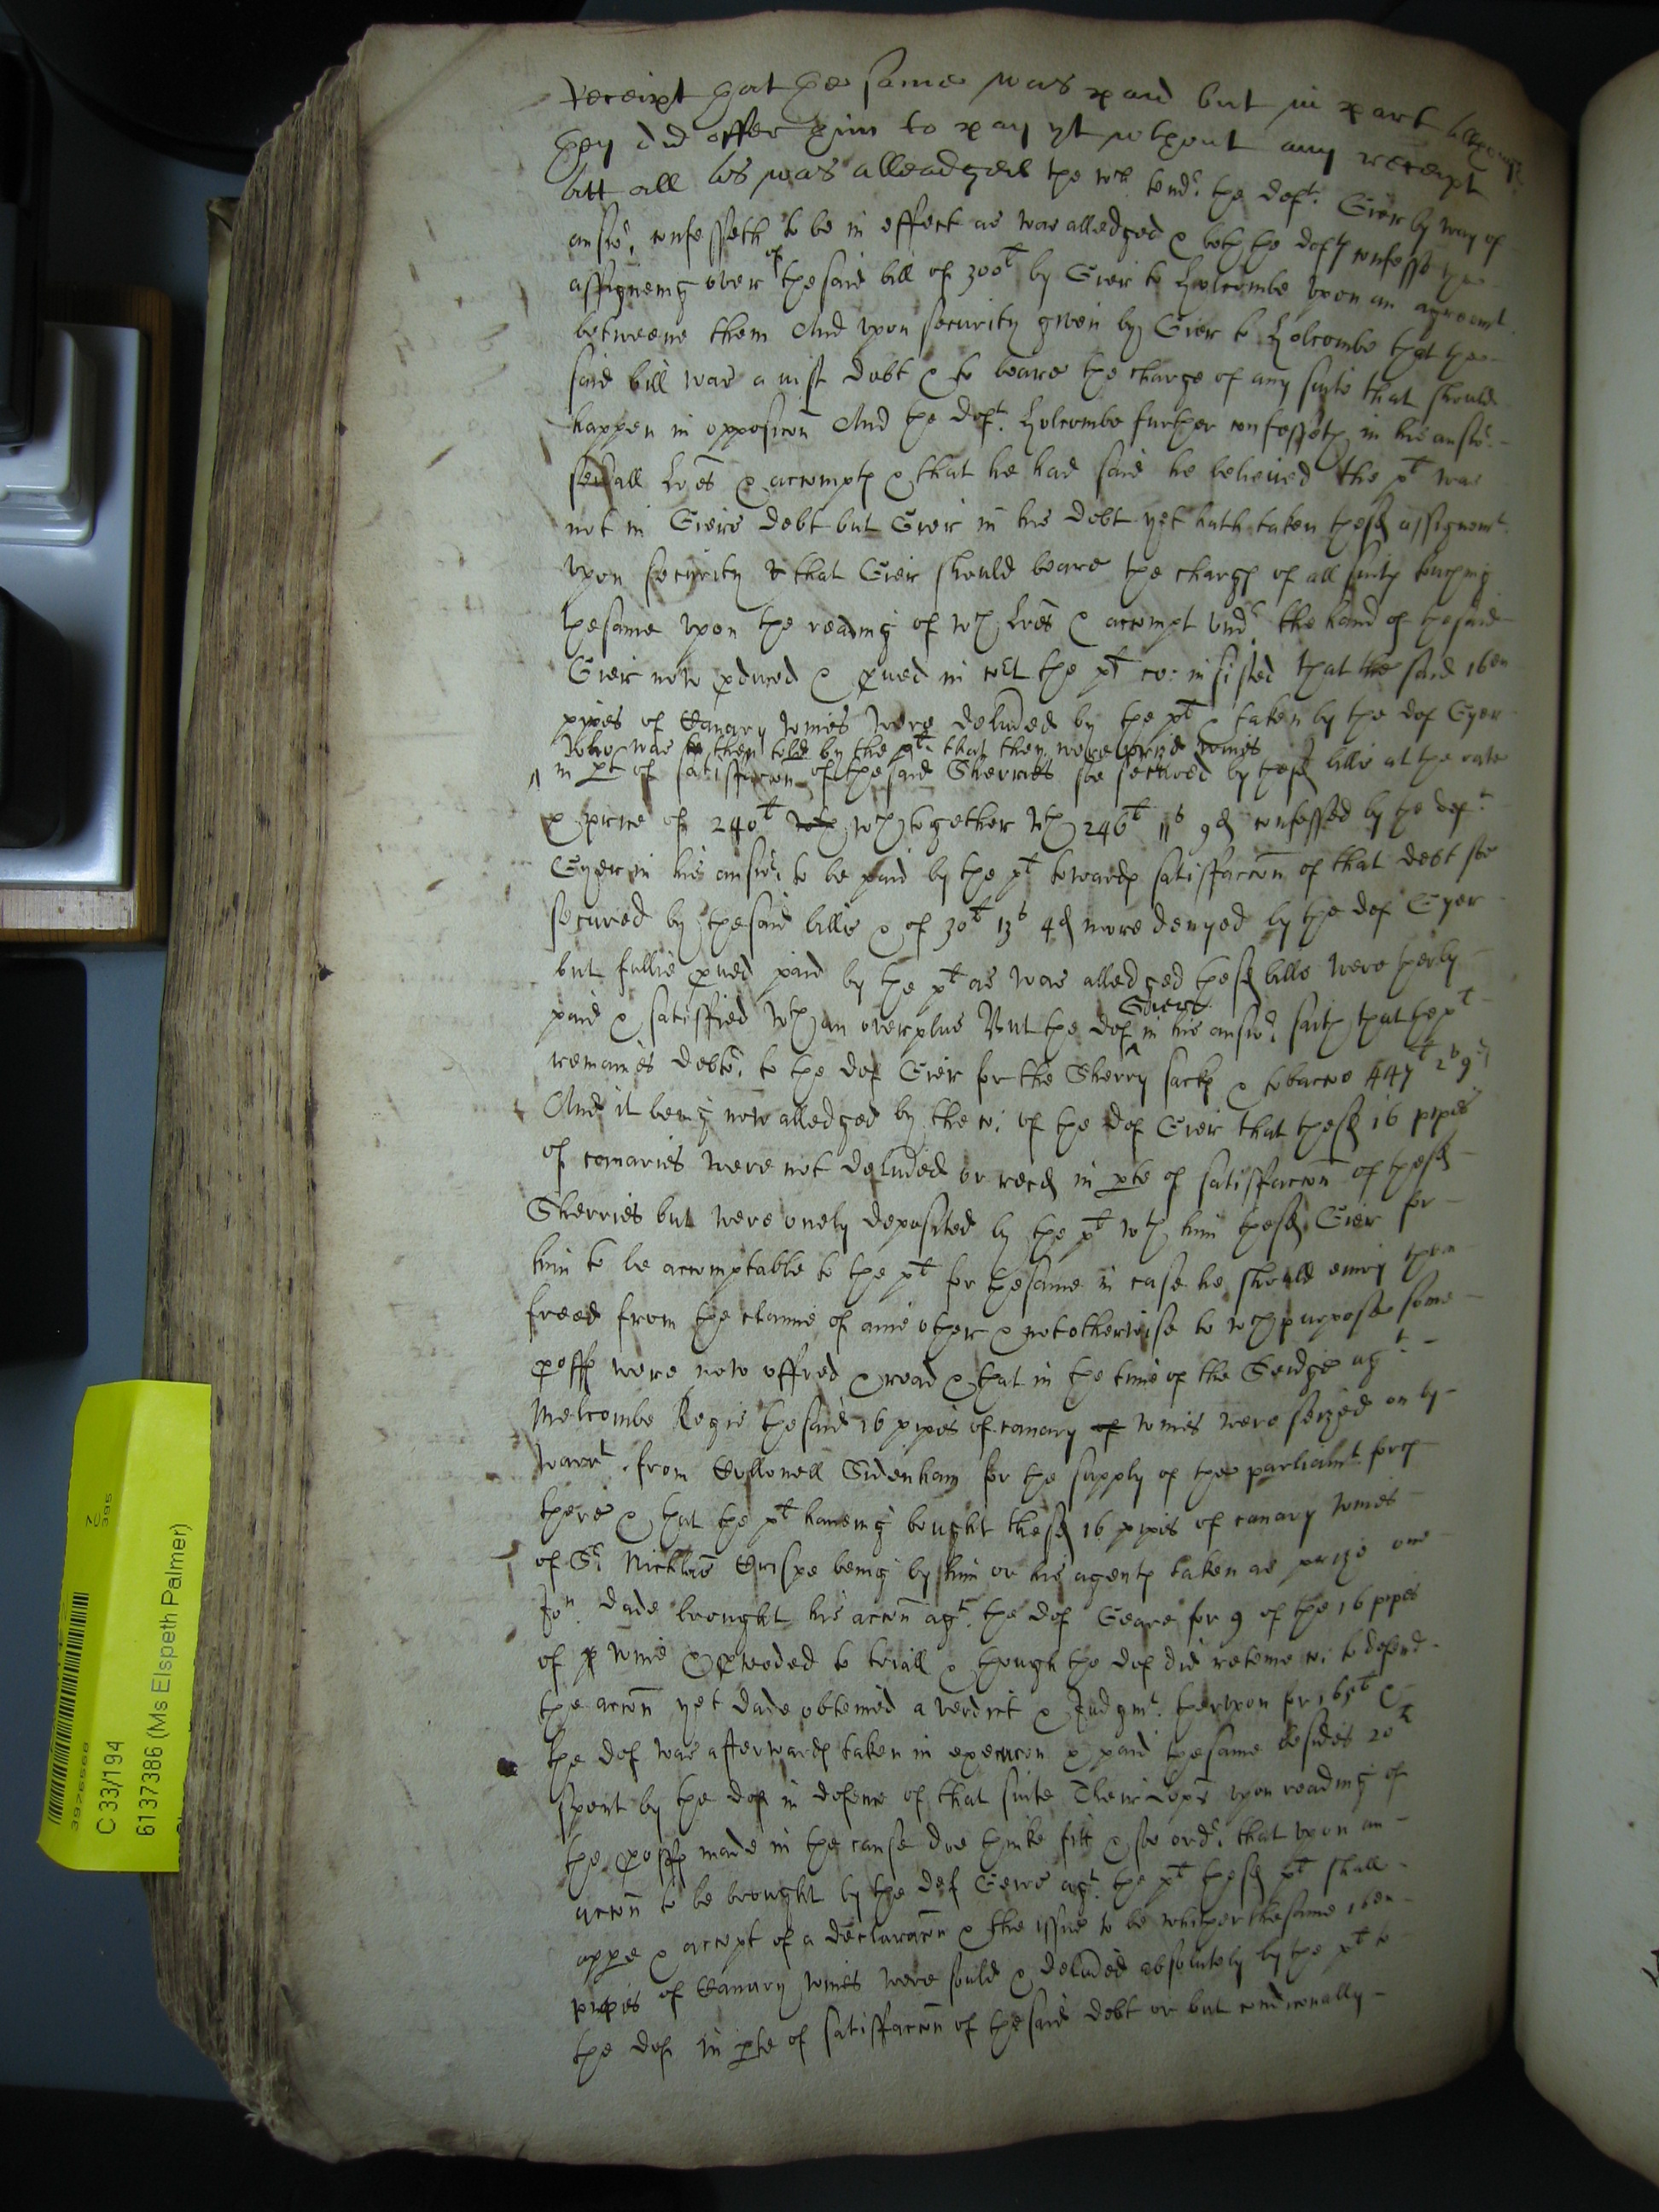 receipt that the same was paid but in part
they did offer him to pay yt wthout any receipt
att all as was alleadged the wch tend. the deft. Gier by way of
answ. confesseth to be in effect as was alledged & both the defts confesse the
assigneing over of the said bill of 300l by Gier to Holcombe vpon an agreemt
betweene them And vpon security given by Gier to Holcombe that the
said bill was a iust debt & to beare the charge of any suite that should
happen in opposicon And the deft. Holcombe further confesseth in his answ.
seuall lres & accompts & that he had said he believed the plt was
not in Giers debt but Gier in his debt yet hath taken the sd assignemt
vpon security & that Gier should beare the charge of all suits touching
the same vpon the reading of wch lres & accompt vndr the hand of the said
Gier now pduced & pued in Cort the plt co: insisted that the said 16en
pipes of Canary wines were deliued by the plt & taken by the def Gyer
who was then told by the plt that they were prize wines
in pt of satisfaccon of the said Sherries soe secured by the sd bills at the rate
& price of 240l wch together wth 246l 11s 9d confessed by the deft
Gyer in his answ. to be paid by the plt towards satisfaccon of that debt soe
secured by the said bills & of 30l 13s 4d more denyed by the def Gyer
but fullie pued paid by the plt as was alledged the sd bills were therby
paid & satisfied wth an overplus But the def Giere in his answ. saith that the plt
remaines debtr. to the def Gier for the Sherry sacks & tobaccoe 447l 2s 9d
And it being now alledged by the co: of the def Gier that the sd 16 pipes
of canaries were not deliued or recd in pte of satisfaccon of the sd
Sherries but were onely deposited by the plt wth him the sd Gier for
him to be accomptable to the plt for the same in case he should enioy them
freed from the claime of anie other & not otherwise to wch purpose some
poffs were now offred & read & that in the time of the Seidge agt.
Melcombe Regis the said 16 pipes of canary wines were seized on by
warrt from Collonell Sidenham for the supply of the parliamt. forces
there & that the plt haueing bought the sd 16 pipes of canary wines
of Sr. Nicklas Crispe being by him or his agents taken as prize one
Jon. Dade brought his accon agt. the def Geare for 9 of the 16 pipes
of wine & pceeded to triall & though the def did reteine co: to defend
the accon yet Dade obteined a verdict & Judgmt. therevpon for 165l &
the def was afterwards taken in execucon & paid the same besides 20l
spent by the def in defence of that suite Their Lopps vpon reading of
the poffs made in the cause doe thinke fitt & soe ordr. that vpon an
accon to be brought by the def Gere agt. the plt the sd plt shall
appe & accept of a declaracon & the issue to be whether the same 16en
pipes of Canary wines were sould & deliued absolutely by the plt to
the def in pte of satisfaccon of the said debt or but condiconally
C 33/194
61 37386 (Ms Elspeth Palmer)